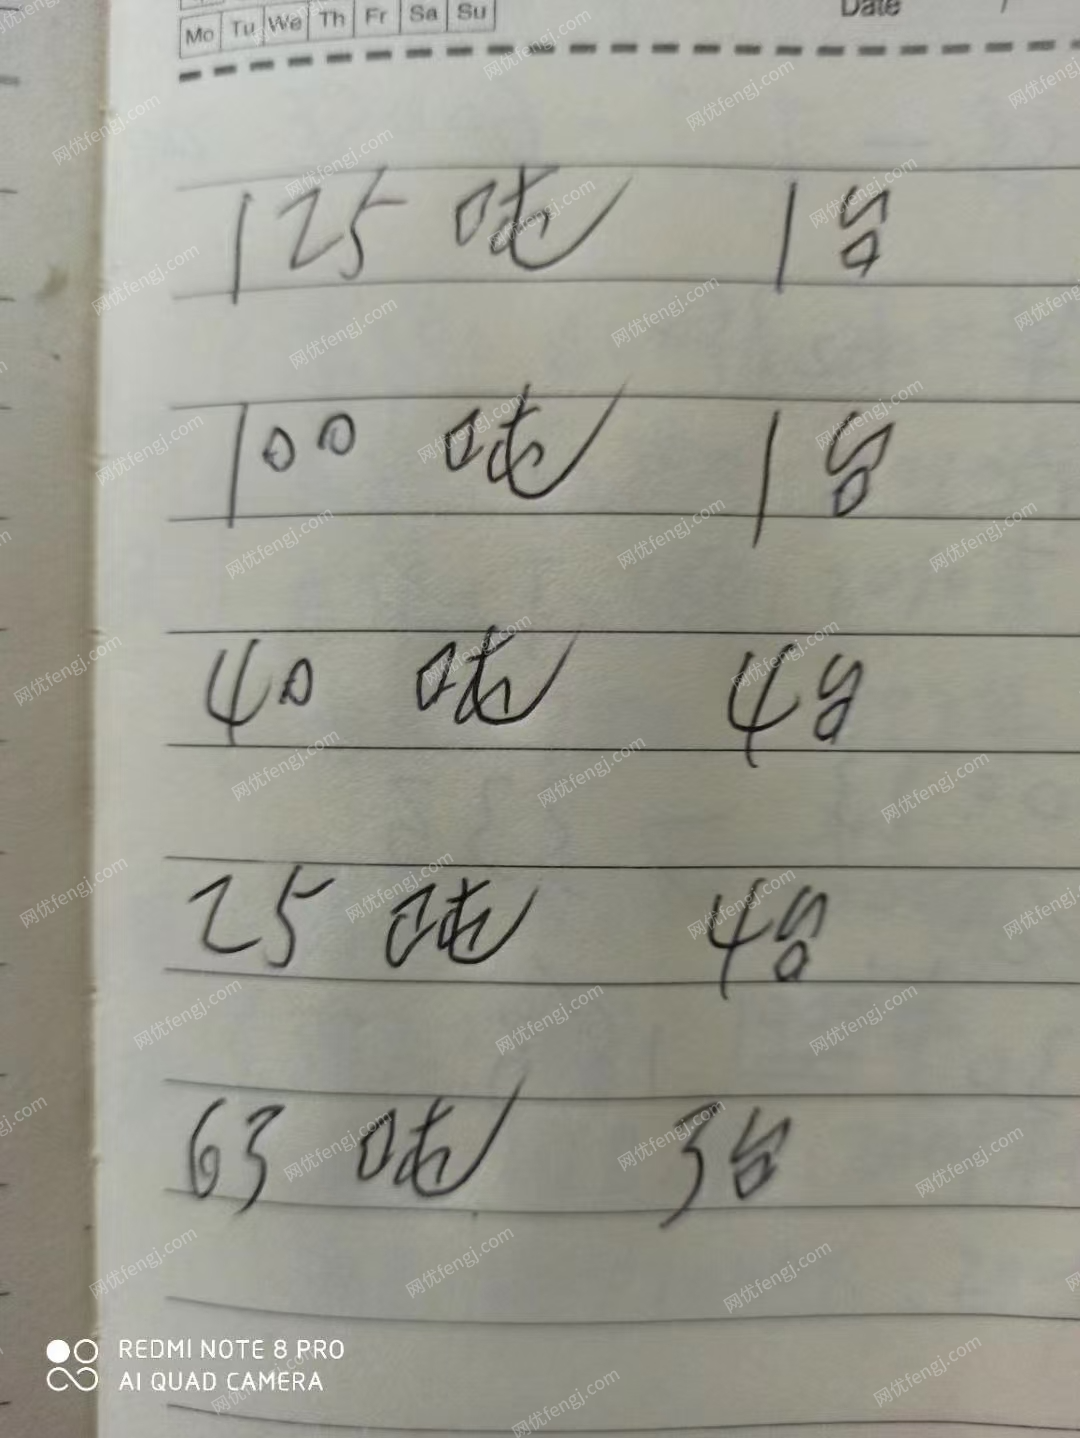 Mo Tu We Th Fr Sa Su
Date /
125 吨 1台
100 吨 1台
40 吨 4台
25 吨 4台
63 吨 3台
REDMI NOTE 8 PRO
AI QUAD CAMERA
网优fengj.com